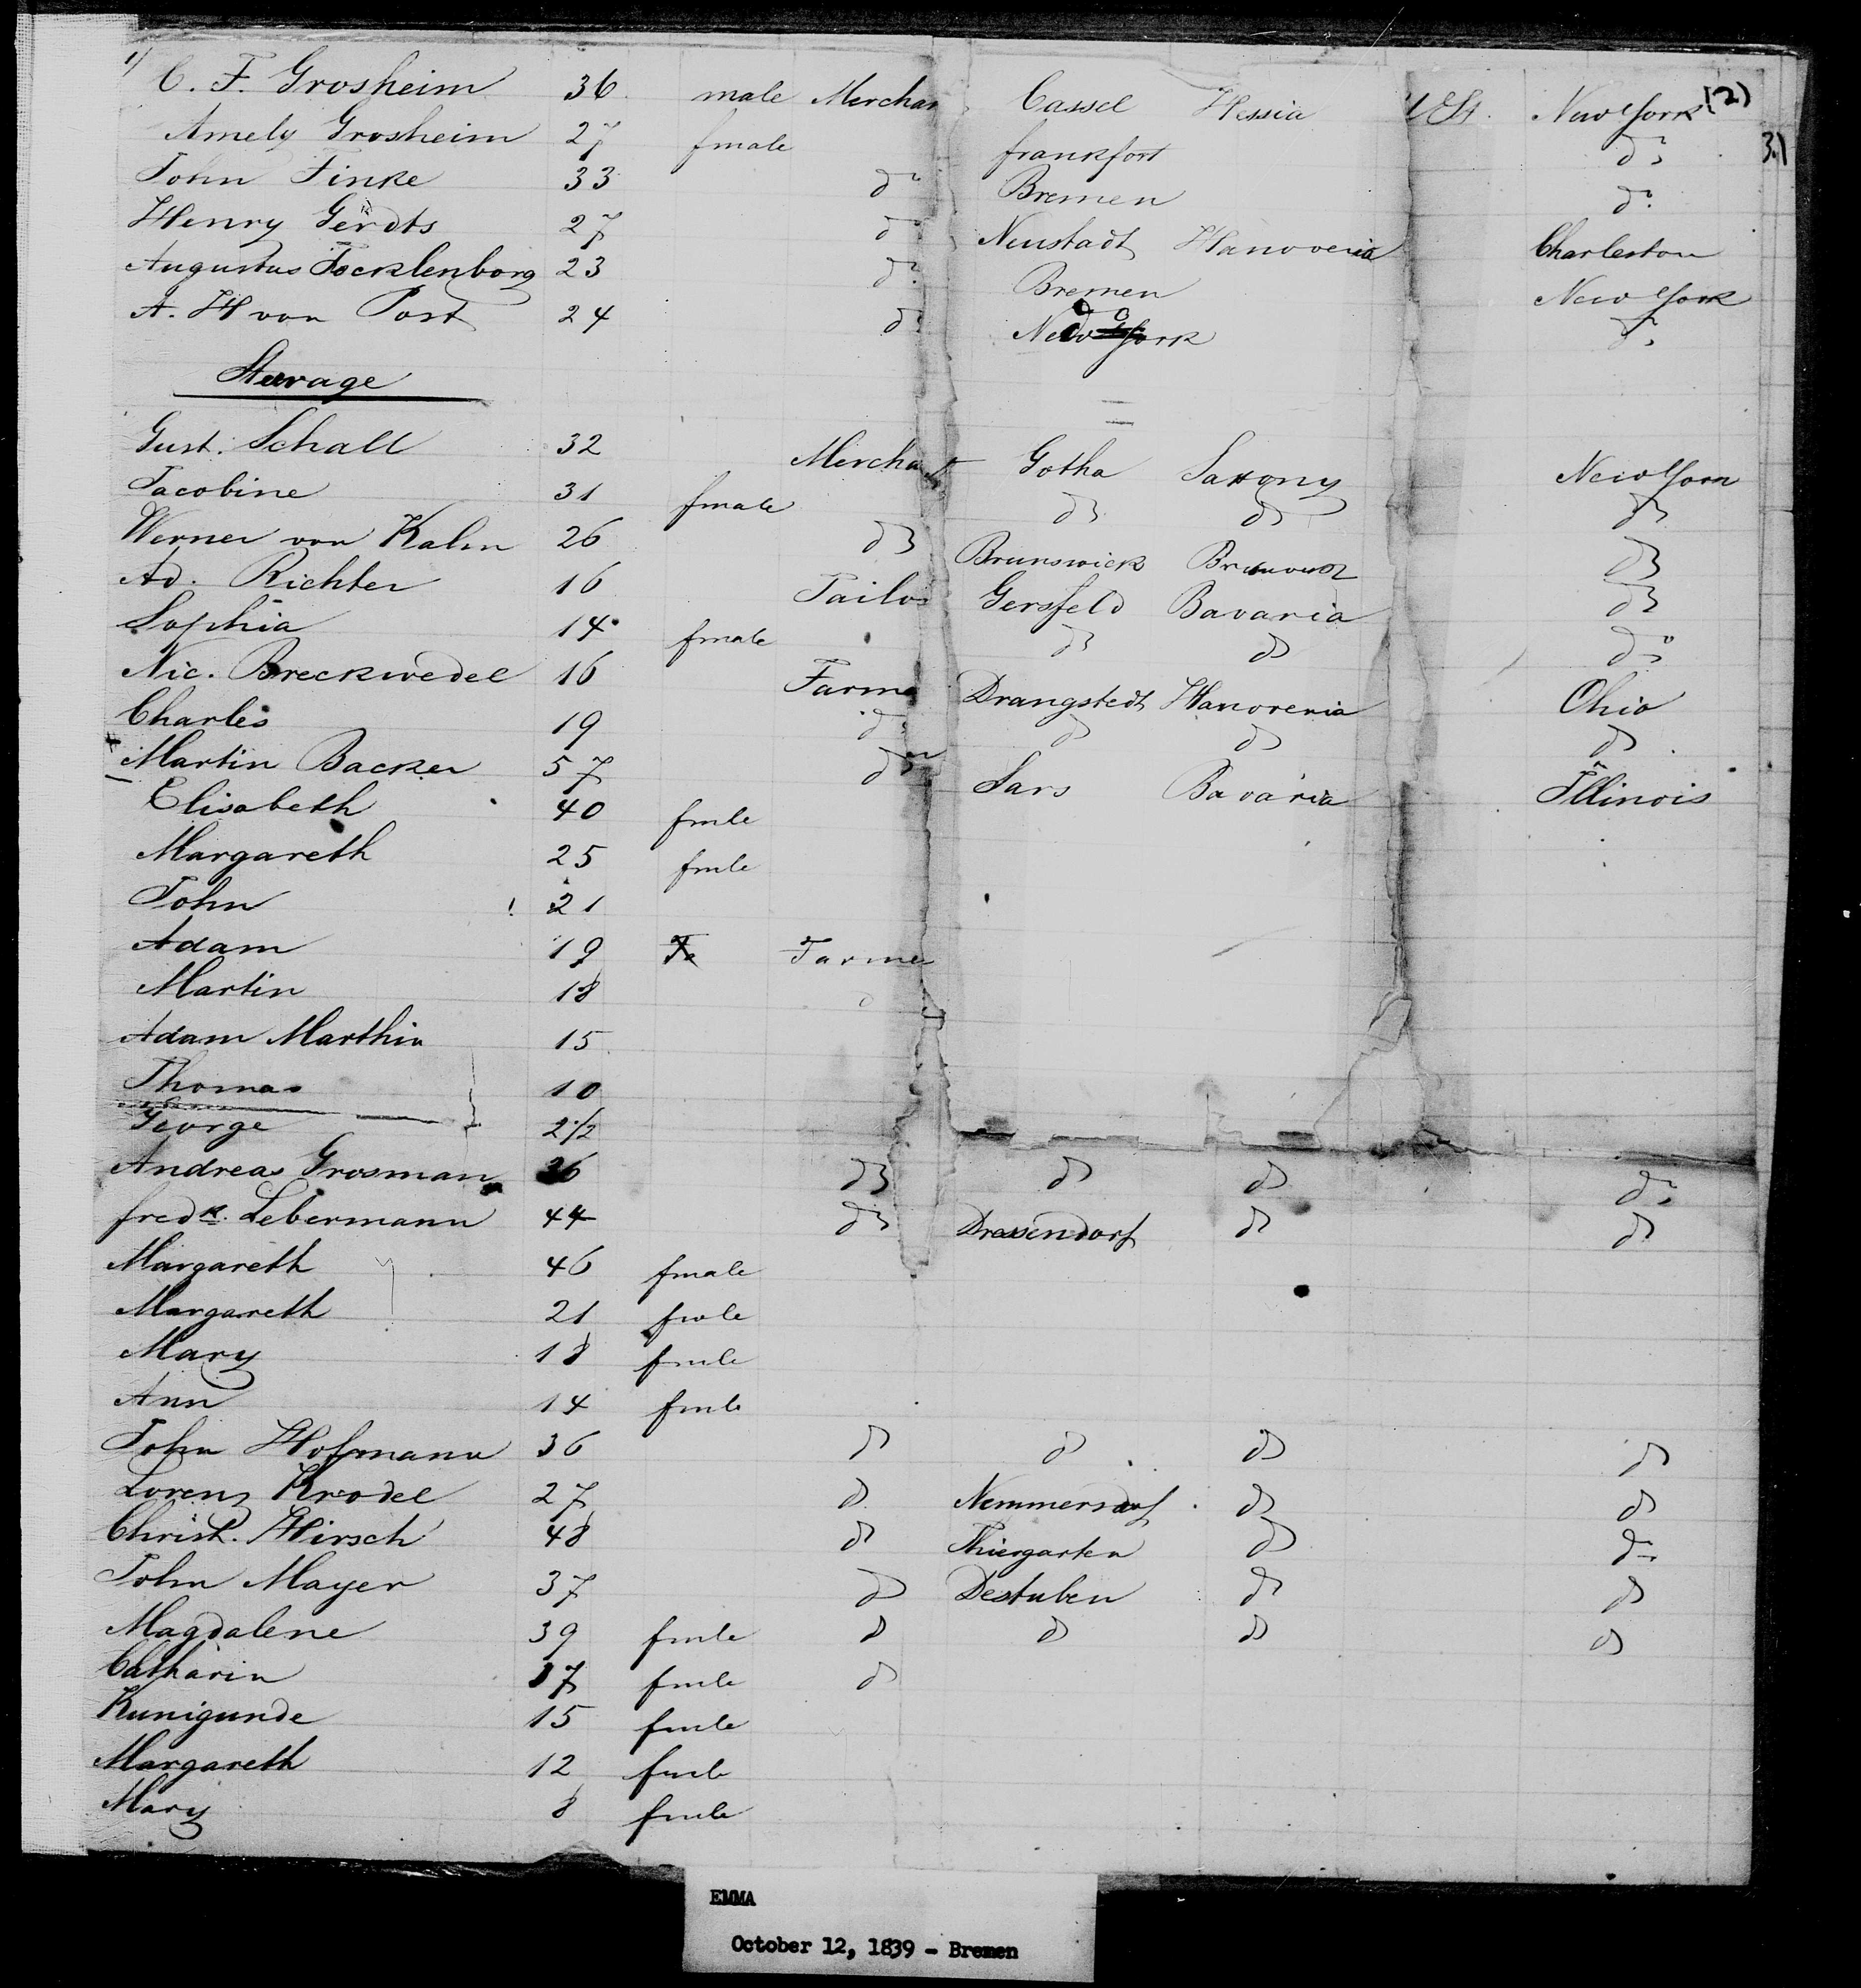 (2)
3.)
1) C. F. Grosheim 36 male Merchan Cassel Hessia U St. New York
Amely Grosheim 27 fmale frankfort do
John Finke 33 do Bremen do
Henry Gerdts 27 do Neustadt Hanoveria Charleston
Augustus Tecklenborg 23 do Bremen New York
A. H von Post 24 do New York do
Steerage
Gust. Schall 32 Merchant Gotha Saxony New York
Jacobine 31 fmale do do do
Werner von Kalm 26 do Brunswick do
Ad. Richter 16 Tailor Gersfeld Bavaria do
Sophia 14 fmale do do do
Nic. Breckwedel 16 Farme Drangstedt Hanoveria Ohio
Charles 19 do do do do
Martin Backer 57 do Sars Bavaria Illinois
Elisabeth 40 fmle
Margareth 25 fmle
John 21
Adam 19 Farme
Martin 18
Adam Marthin 15
Thomas 10
George 2 1/2
Andreas Grosman 26 do do do do
fredk. Lebermann 44 do Dressendorf do do
Margareth 46 fmale
Margareth 21 fmle
Mary 18 fmle
Ann 14 fmle
John Hofmann 36 do do do do
Lorenz Krodel 27 do Nemmersdorf do do
Christ. Hirsch 48 do Thiergarten do do
John Mayer 37 do Destuben do do
Magdalene 39 fmle do do do do
Catharin 17 fmle do
Kunigunde 15 fmle
Margareth 12 fmle
Mary 8 fmle
EMMA
October 12, 1839 - Bremen